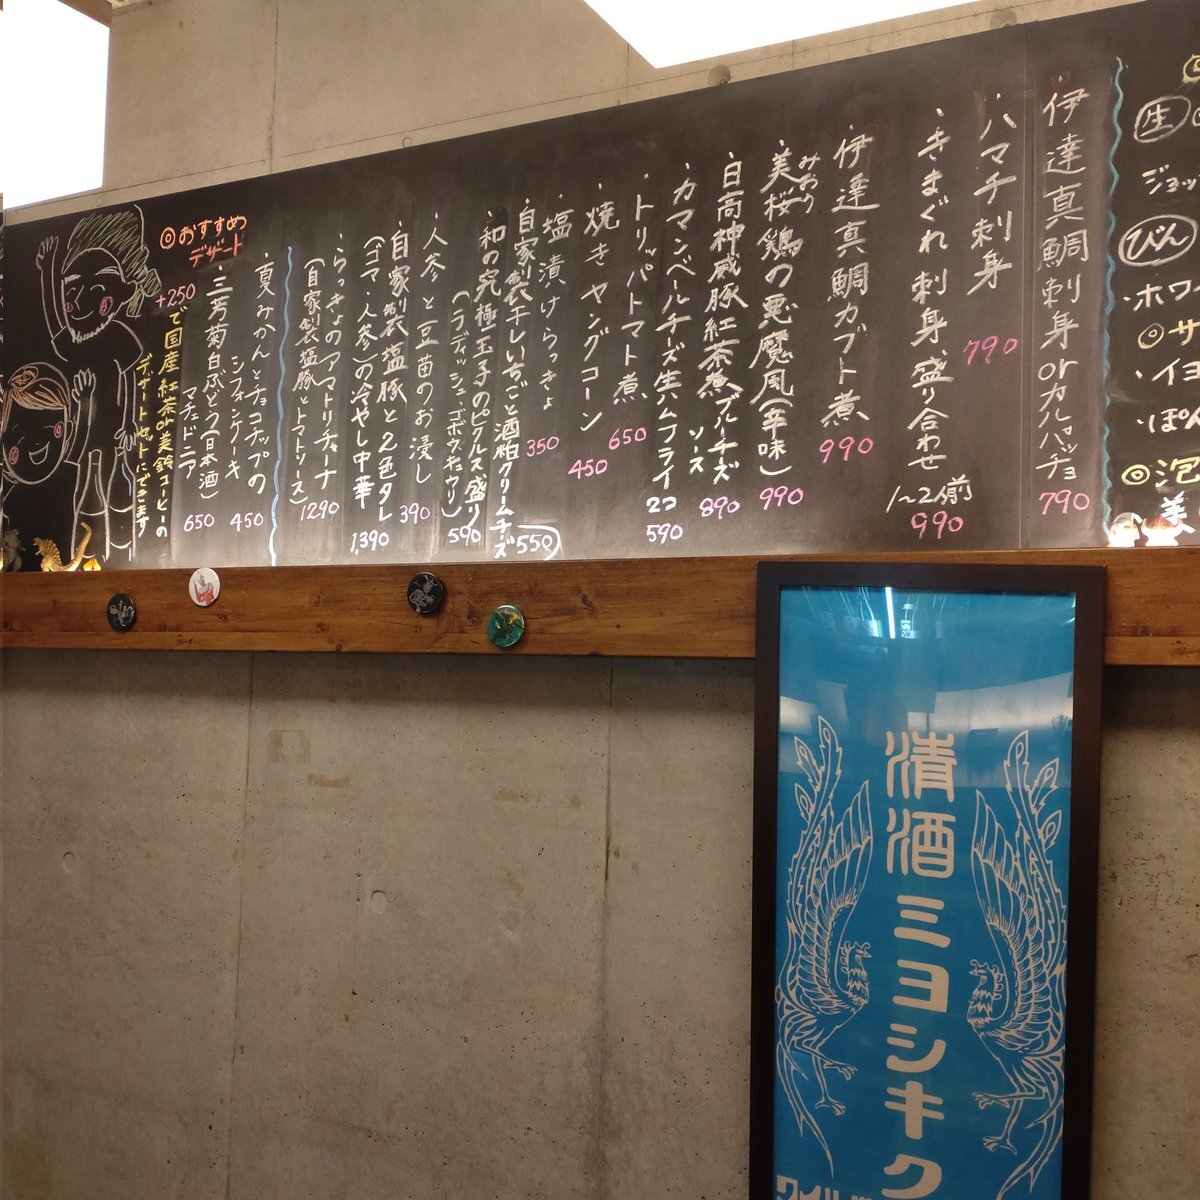 生
ジョッ
びん
・ホワ
◎サ
・イヨ
・ぽん
◎泡
美
・伊達真鯛刺身orカルパッチョ
790
・ハマチ刺身
790
・きまぐれ刺身盛り合わせ
1〜2人前
990
・伊達真鯛カブト煮
990
みおう
・美桜鶏の悪魔風(辛味)
990
・日高神威豚紅茶煮ブルーチーズ
ソース
890
・カマンベールチーズ生ハムフライ
2コ
590
・トリッパトマト煮
650
・焼きヤングコーン
450
・塩漬けらっきょ
350
・自家製干しいちごと酒粕クリームチーズ
550
・和の究極玉子のピクルス盛り
(ラディッシュ・ゴボウ・キュウリ)
590
・人参と豆苗のお浸し
390
・自家製塩豚と2色ダレ
(ゴマ 人参)の冷やし中華
1,390
・らっきょのアマトリチャーナ
(自家製塩豚とトマトソース)
1290
◎おすすめ
デザート
・夏みかんとチョコチップの
シフォンケーキ
450
・三芳菊白ぶどう(日本酒)
マチェドニア
650
+250で国産紅茶or美鈴コーヒーの
デザートセットにできます
清酒ミヨシキク
ワイル